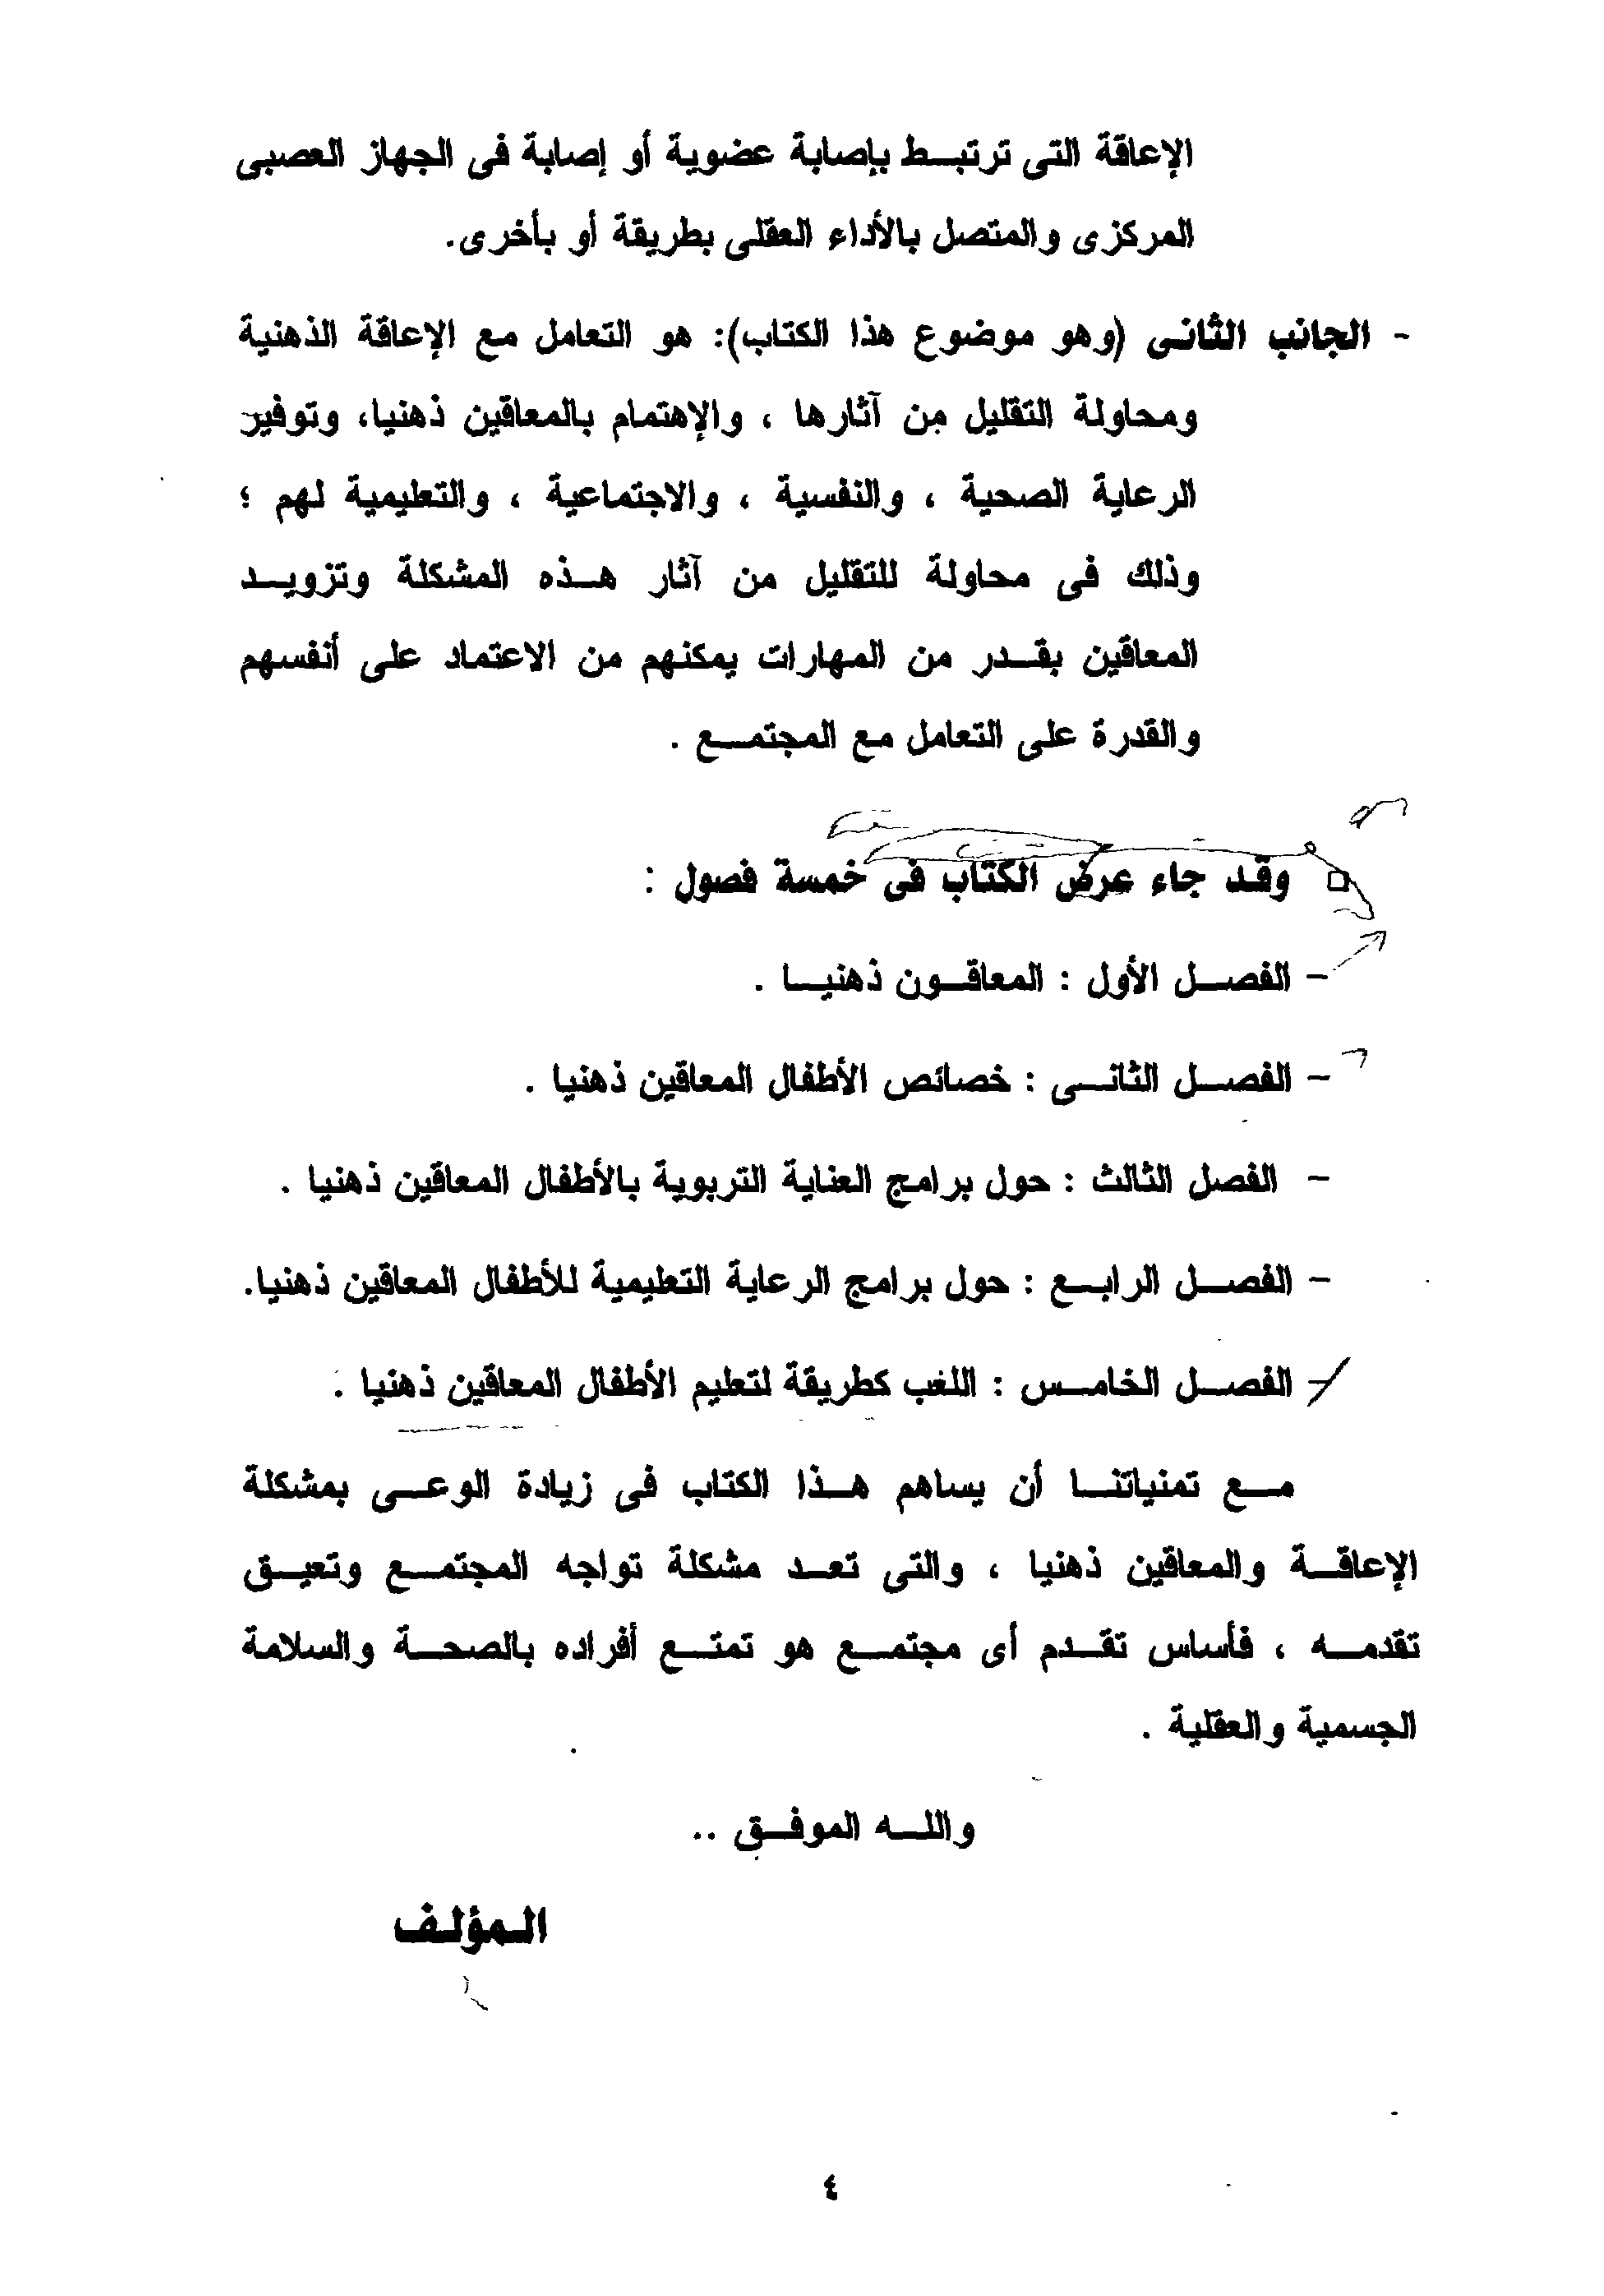 الإعاقة التى ترتبط بإصابة عضوية أو إصابة فى الجهاز العصبى
المركزى والمتصل بالأداء العقلى بطريقة أو بأخرى.
- الجانب الثانى (وهو موضوع هذا الكتاب): هو التعامل مع الإعاقة الذهنية
ومحاولة التقليل من آثارها ، والإهتمام بالمعاقين ذهنيا، وتوفير
الرعاية الصحية ، والنفسية ، والاجتماعية ، والتعليمية لهم ؛
وذلك فى محاولة للتقليل من آثار هذه المشكلة وتزويد
المعاقين بقدر من المهارات يمكنهم من الاعتماد على أنفسهم
والقدرة على التعامل مع المجتمع .
□ وقد جاء عرض الكتاب فى خمسة فصول :
- الفصل الأول : المعاقون ذهنيا .
- الفصل الثانى : خصائص الأطفال المعاقين ذهنيا .
- الفصل الثالث : حول برامج العناية التربوية بالأطفال المعاقين ذهنيا .
- الفصل الرابع : حول برامج الرعاية التعليمية للأطفال المعاقين ذهنيا.
- الفصل الخامس : اللعب كطريقة لتعليم الأطفال المعاقين ذهنيا .
مع تمنياتنا أن يساهم هذا الكتاب فى زيادة الوعى بمشكلة
الإعاقة والمعاقين ذهنيا ، والتى تعد مشكلة تواجه المجتمع وتعيق
تقدمه ، فأساس تقدم أى مجتمع هو تمتع أفراده بالصحة والسلامة
الجسمية والعقلية .
والله الموفق ..
المؤلف
٤